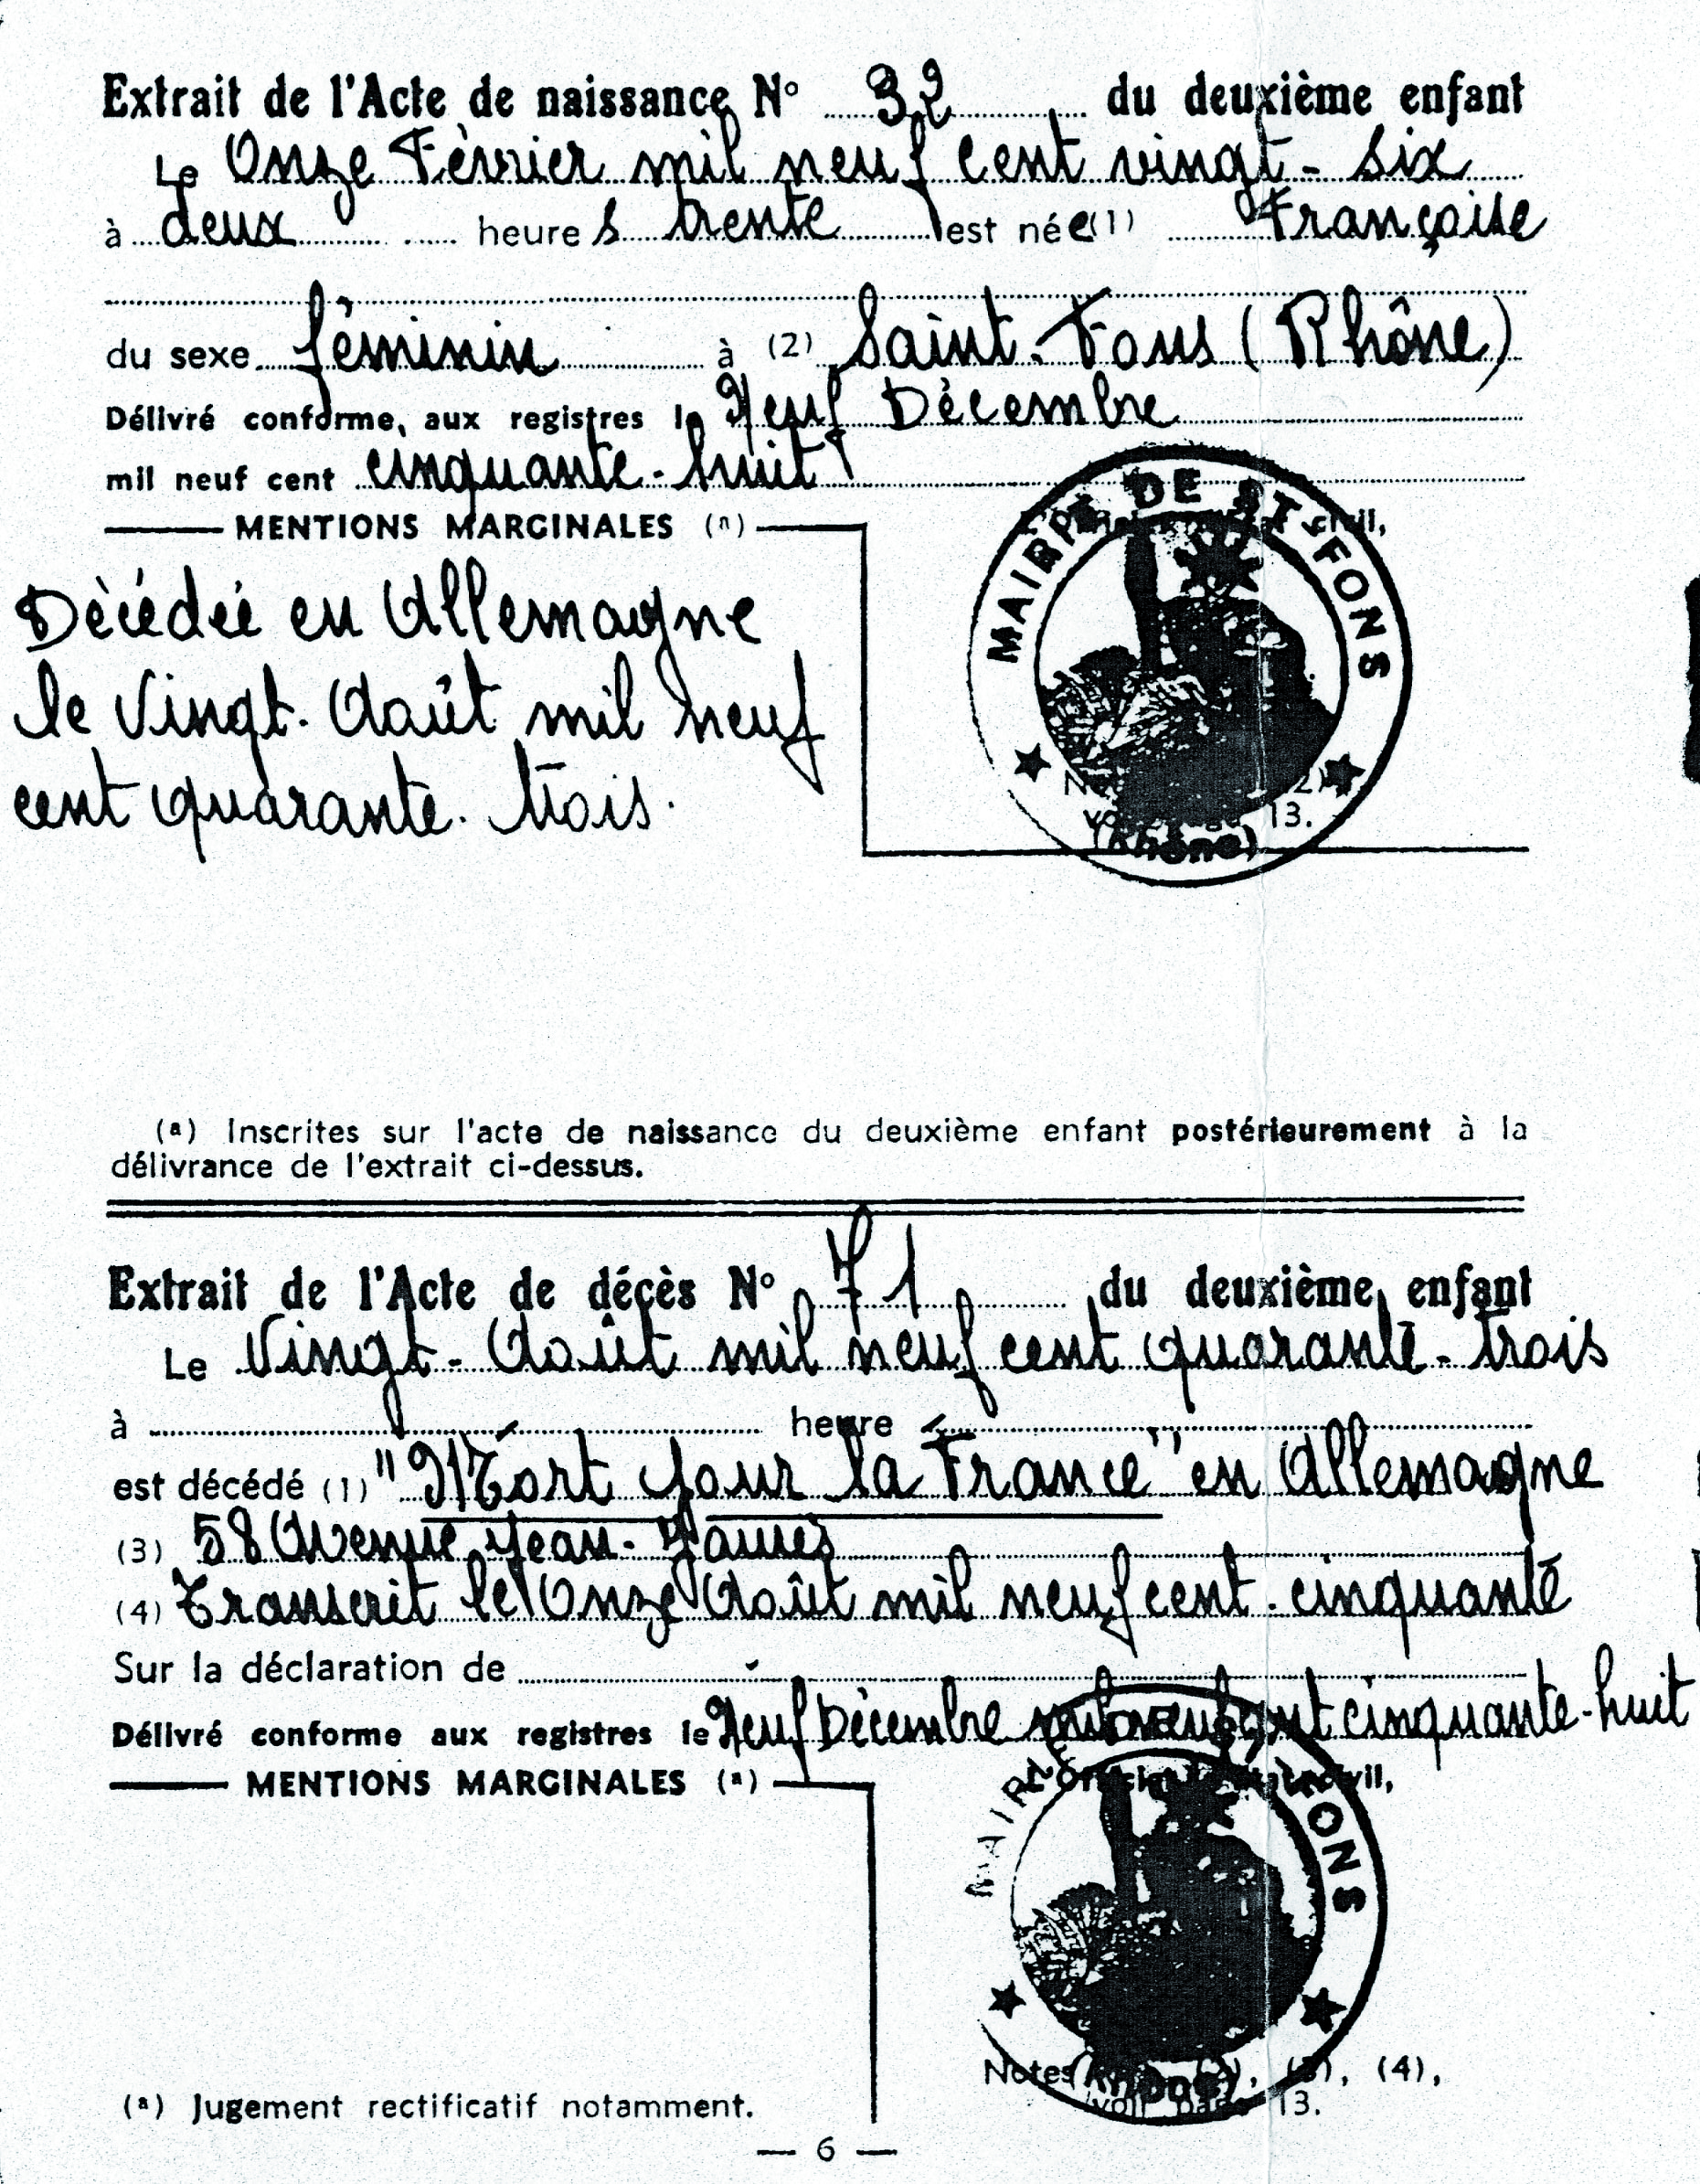 Extrait de l'Acte de naissance N° 32 du deuxième enfant
Le Onze Février mil neuf cent vingt-six
à deux heures trente est née (1) Française
du sexe féminin à (2) Saint-Fons (Rhône)
Délivré conforme, aux registres le Neuf Décembre
mil neuf cent cinquante-huit
MENTIONS MARGINALES (a)
civil,
MAIRIE DE ST-FONS
Décédée en Allemagne
le Vingt-Août mil neuf
cent quarante-trois.
13.
(Rhône)
(a) Inscrites sur l'acte de naissance du deuxième enfant postérieurement à la
délivrance de l'extrait ci-dessus.
Extrait de l'Acte de décès N° 71 du deuxième enfant
Le Vingt-Août mil neuf cent quarante-trois
à heure
est décédé (1) "Mort pour la France" en Allemagne
(3) 58 Avenue Jean-Jaurès
(4) Transcrit le Onze Août mil neuf cent-cinquante
Sur la déclaration de
Délivré conforme aux registres le Neuf Décembre mil neuf cent cinquante-huit
MENTIONS MARGINALES (a)
L'Officier civil,
MAIRIE FONS
Notes (3), (4),
voir page 13.
(a) Jugement rectificatif notamment.
— 6 —